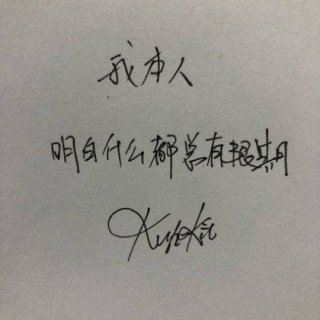 我本人
明白什么都总有限期